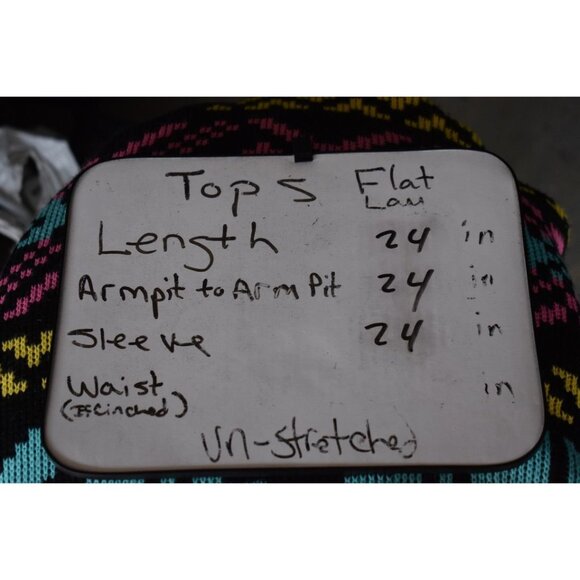 Tops Flat Lay
Length 24 in
Armpit to Arm Pit 24 in
Sleeve 24 in
Waist in
(If Cinched)
Un-stretched